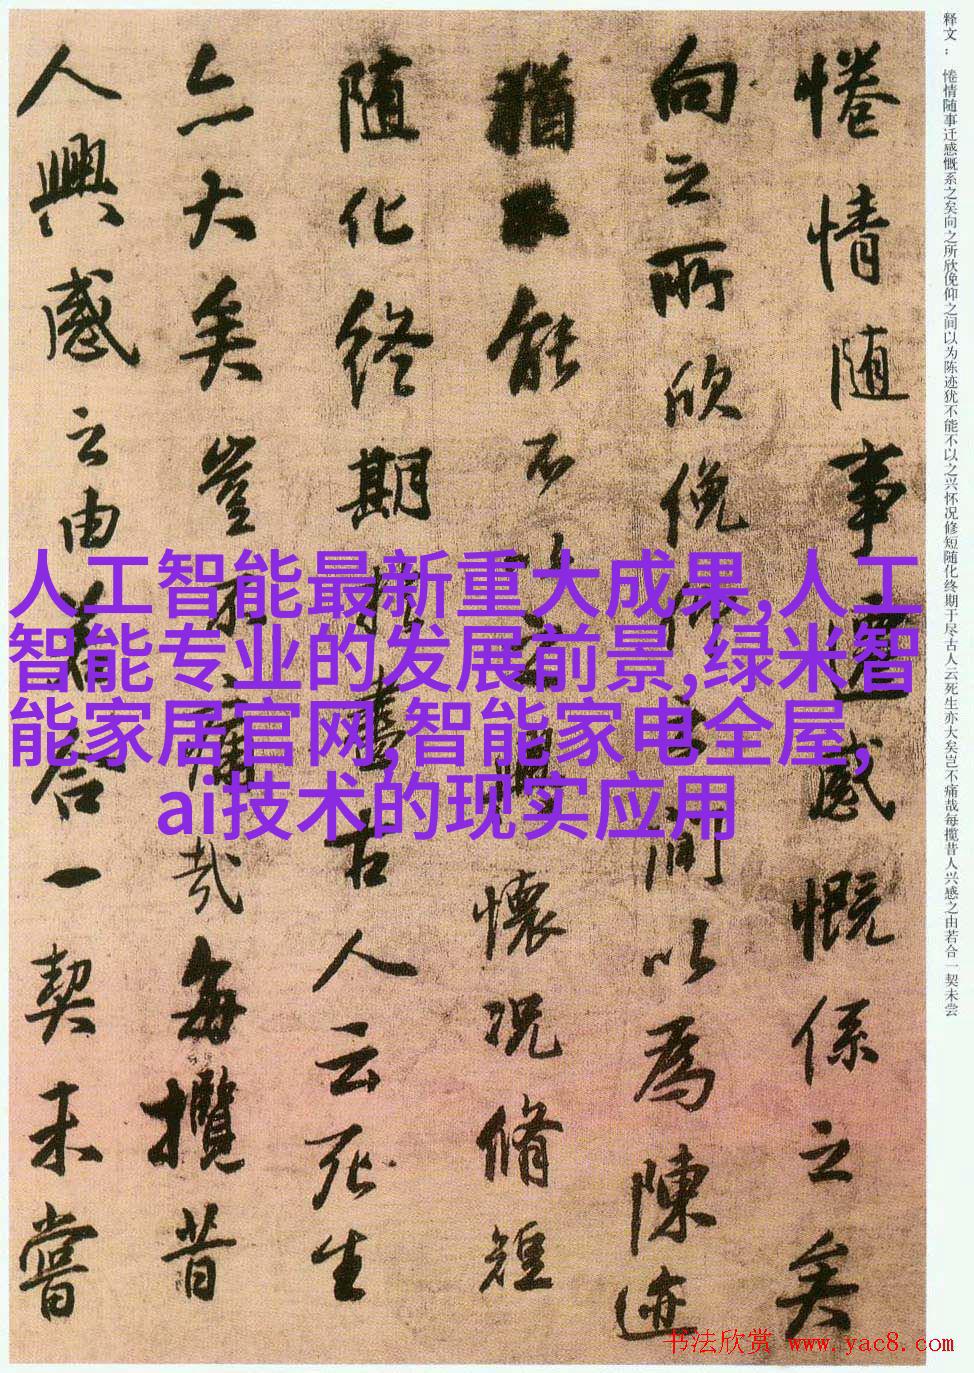 释文：惓情随事迁感慨系之矣向之所欣俛仰之间以为陈迹犹不能不以之兴怀况修短随化终期于尽古人云死生亦大矣岂不痛哉每揽昔人兴感之由若合一契未尝
惓情随事遷感慨係之矣
向之所欣俛仰之間以為陳迹
猶不能不以之興懷況脩短
随化終期於盡古人云死生
亦大矣豈不痛哉每攬昔
人興感之由若合一契未嘗
人工智能最新重大成果,人工
智能专业的发展前景,绿米智
能家居官网,智能家电全屋,
ai技术的现实应用
书法欣赏 www.yac8.com